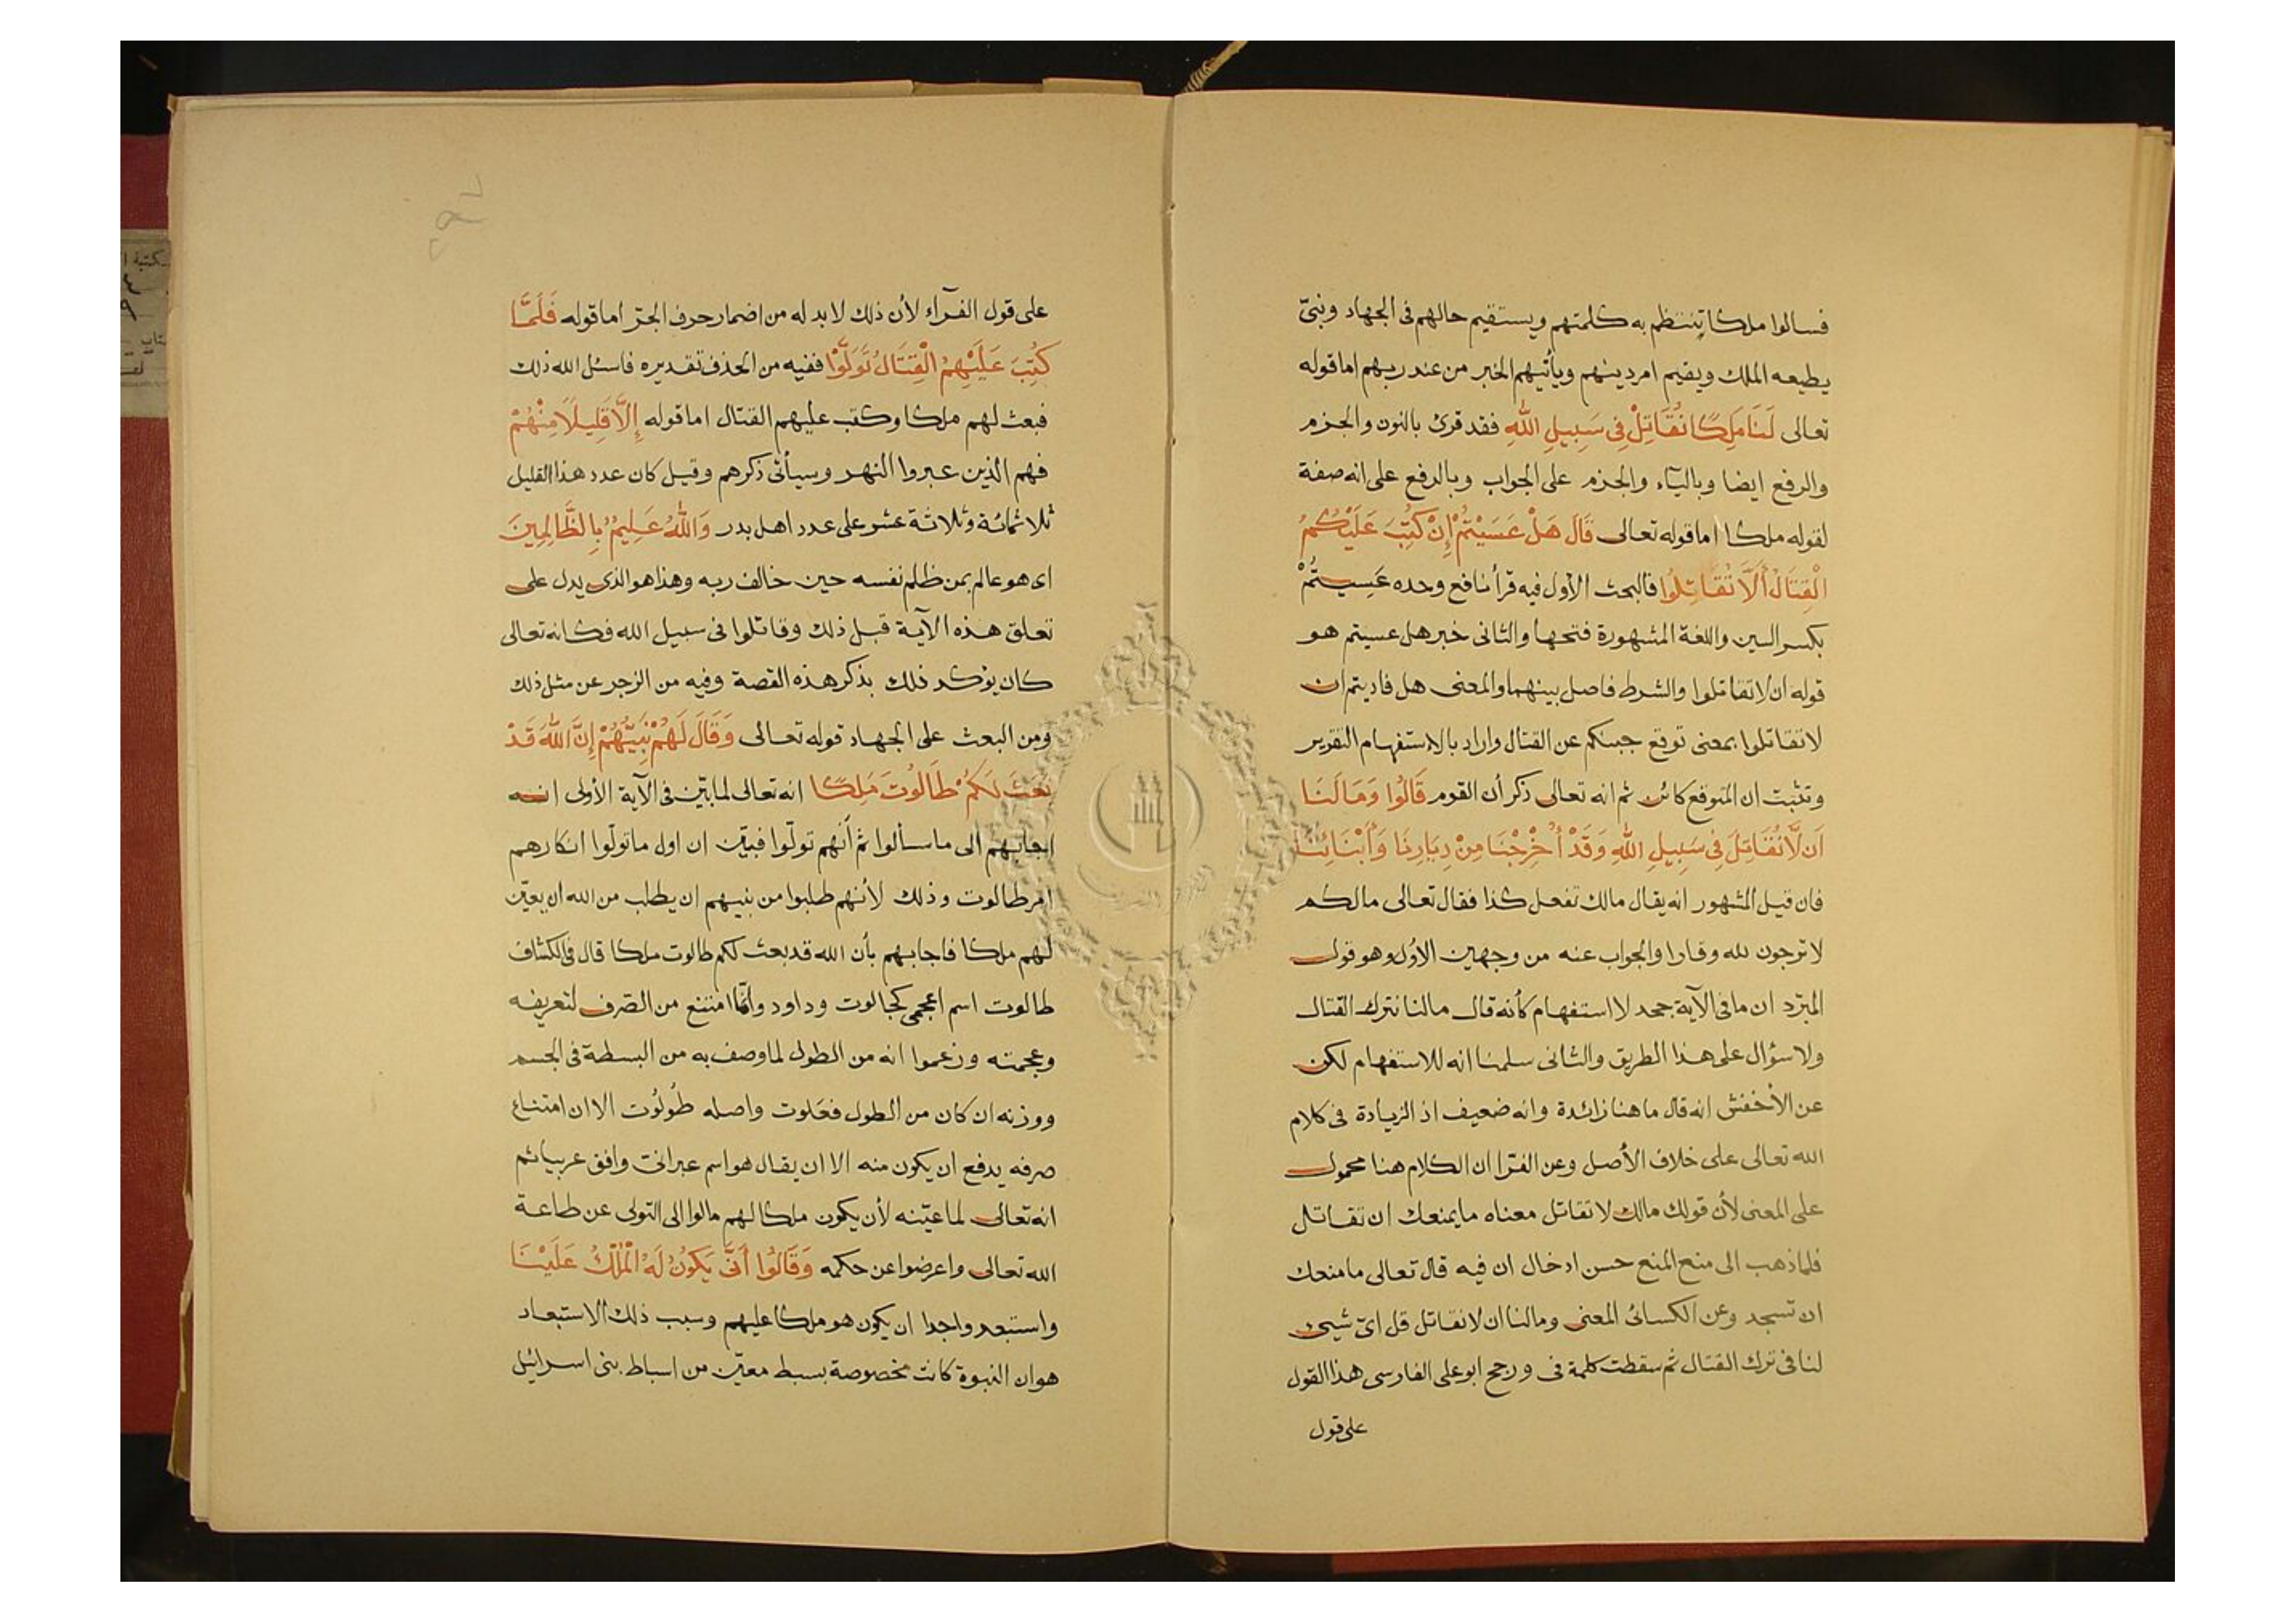 فسالوا ملكا تنتظم به كلمتهم ويستقيم حالهم فى الجهاد ونبىّ
يطيعه الملك ويقيم امر دينهم ويأتيهم الخبر من عند ربهم اما قوله
تعالى لَنَا مَلِكًا نُقَاتِلْ فِى سَبِيلِ اللّٰهِ فقد قرئ بالنون والجزم
والرفع ايضا وباليآء والجزم على الجواب وبالرفع على انه صفة
لقوله ملكا اما قوله تعالى قَالَ هَلْ عَسَيْتُمْ إِنْ كُتِبَ عَلَيْكُمُ
الْقِتَالُ أَلَّا تُقَاتِلُوا فالبحث الأول فيه قرأ نافع وحده عَسِيتُمْ
بكسر السين واللغة المشهورة فتحها والثانى خبر هل عسيتم هو
قوله ان لا تقاتلوا والشرط فاصل بينهما والمعنى هل قاديتم ان
لا تقاتلوا بمعنى توقع جبنكم عن القتال واراد بالاستفهام التقرير
وتثبت ان المتوقع كائن ثم انه تعالى ذكر أن القوم قَالُوا وَمَا لَنَا
اَن لَّا نُقَاتِلَ فِى سَبِيلِ اللّٰهِ وَقَدْ أُخْرِجْنَا مِنْ دِيَارِنَا وَأَبْنَائِنَا
فان قيل المشهور انه يقال مالك تفعل كذا فقال تعالى مالكم
لا ترجون لله وقارا والجواب عنه من وجهين الأول وهو قول
المبرّد ان ما فى الآية جحد لا استفهام كأنه قال مالنا نترك القتال
ولا سؤال على هذا الطريق والثانى سلمنا انه للاستفهام لكن
عن الأخفش انه قال ما هنا زائدة وانه ضعيف اذ الزيادة فى كلام
الله تعالى على خلاف الأصل وعن الفرّا ان الكلام هنا محمول
على المعنى لأن قولك مالك لا تقاتل معناه ما يمنعك ان تقاتل
فلما ذهب الى منع المنع حسن ادخال ان فيه قال تعالى ما منعك
ان تسجد وعن الكسائى المعنى ومالنا ان لا نقاتل قل اىّ شيىء
لنا فى ترك القتال ثم سقطت كلمة فى ورجح ابو على الفارسى هذا القول
على قول
على قول الفرآء لأن ذلك لا بد له من اضمار حرف الجرّ اما قوله فَلَمَّا
كُتِبَ عَلَيْهِمُ الْقِتَالُ تَوَلَّوْا ففيه من الحذف تقديره فاسئل الله ذلك
فبعث لهم ملكا وكتب عليهم القتال اما قوله إِلَّا قَلِيلًا مِنْهُمْ
فهم الذين عبروا النهر وسيأتى ذكرهم وقيل كان عدد هذا القليل
ثلاثمائة وثلاثة عشر على عدد اهل بدر وَاللّٰهُ عَلِيمٌ بِالظَّالِمِينَ
اى هو عالم بمن ظلم نفسه حين خالف ربه وهذا هو الذى يدل على
تعلق هذه الآية قبل ذلك وقاتلوا فى سبيل الله فكانه تعالى
كان يؤكد ذلك بذكر هذه القصة وفيه من الزجر عن مثل ذلك
ومن البعث على الجهاد قوله تعالى وَقَالَ لَهُمْ نَبِيُّهُمْ إِنَّ اللّٰهَ قَدْ
بَعَثَ لَكُمْ طَالُوتَ مَلِكًا انه تعالى لما بيّن فى الآية الأولى انه
اجابهم الى ما سألوا ثم أنهم تولّوا فبيّن ان اول ما تولّوا انكارهم
امر طالوت وذلك لأنهم طلبوا من نبيهم ان يطلب من الله ان يعيّن
لهم ملكا فاجابهم بأن الله قد بعث لكم طالوت ملكا قال فى الكشاف
طالوت اسم اعجمى كجالوت وداود وانّما امتنع من الصّرف لتعريفه
وعجمته وزعموا انه من الطول لما وصف به من البسطة فى الجسم
ووزنه ان كان من الطول فعَلوت واصله طَولُوت الا ان امتناع
صرفه يدفع ان يكون منه الا ان يقال هو اسم عبرانى وافق عربيا ثم
انه تعالى لما عيّنه لأن يكون ملكا لهم مالوا الى التولى عن طاعة
الله تعالى واعرضوا عن حكمه وَقَالُوا أَنَّى يَكُونُ لَهُ الْمُلْكُ عَلَيْنَا
واستبعدوا جدا ان يكون هو ملكا عليهم وسبب ذلك الاستبعاد
هو ان النبوة كانت مخصوصة بسبط معيّن من اسباط بنى اسرائيل